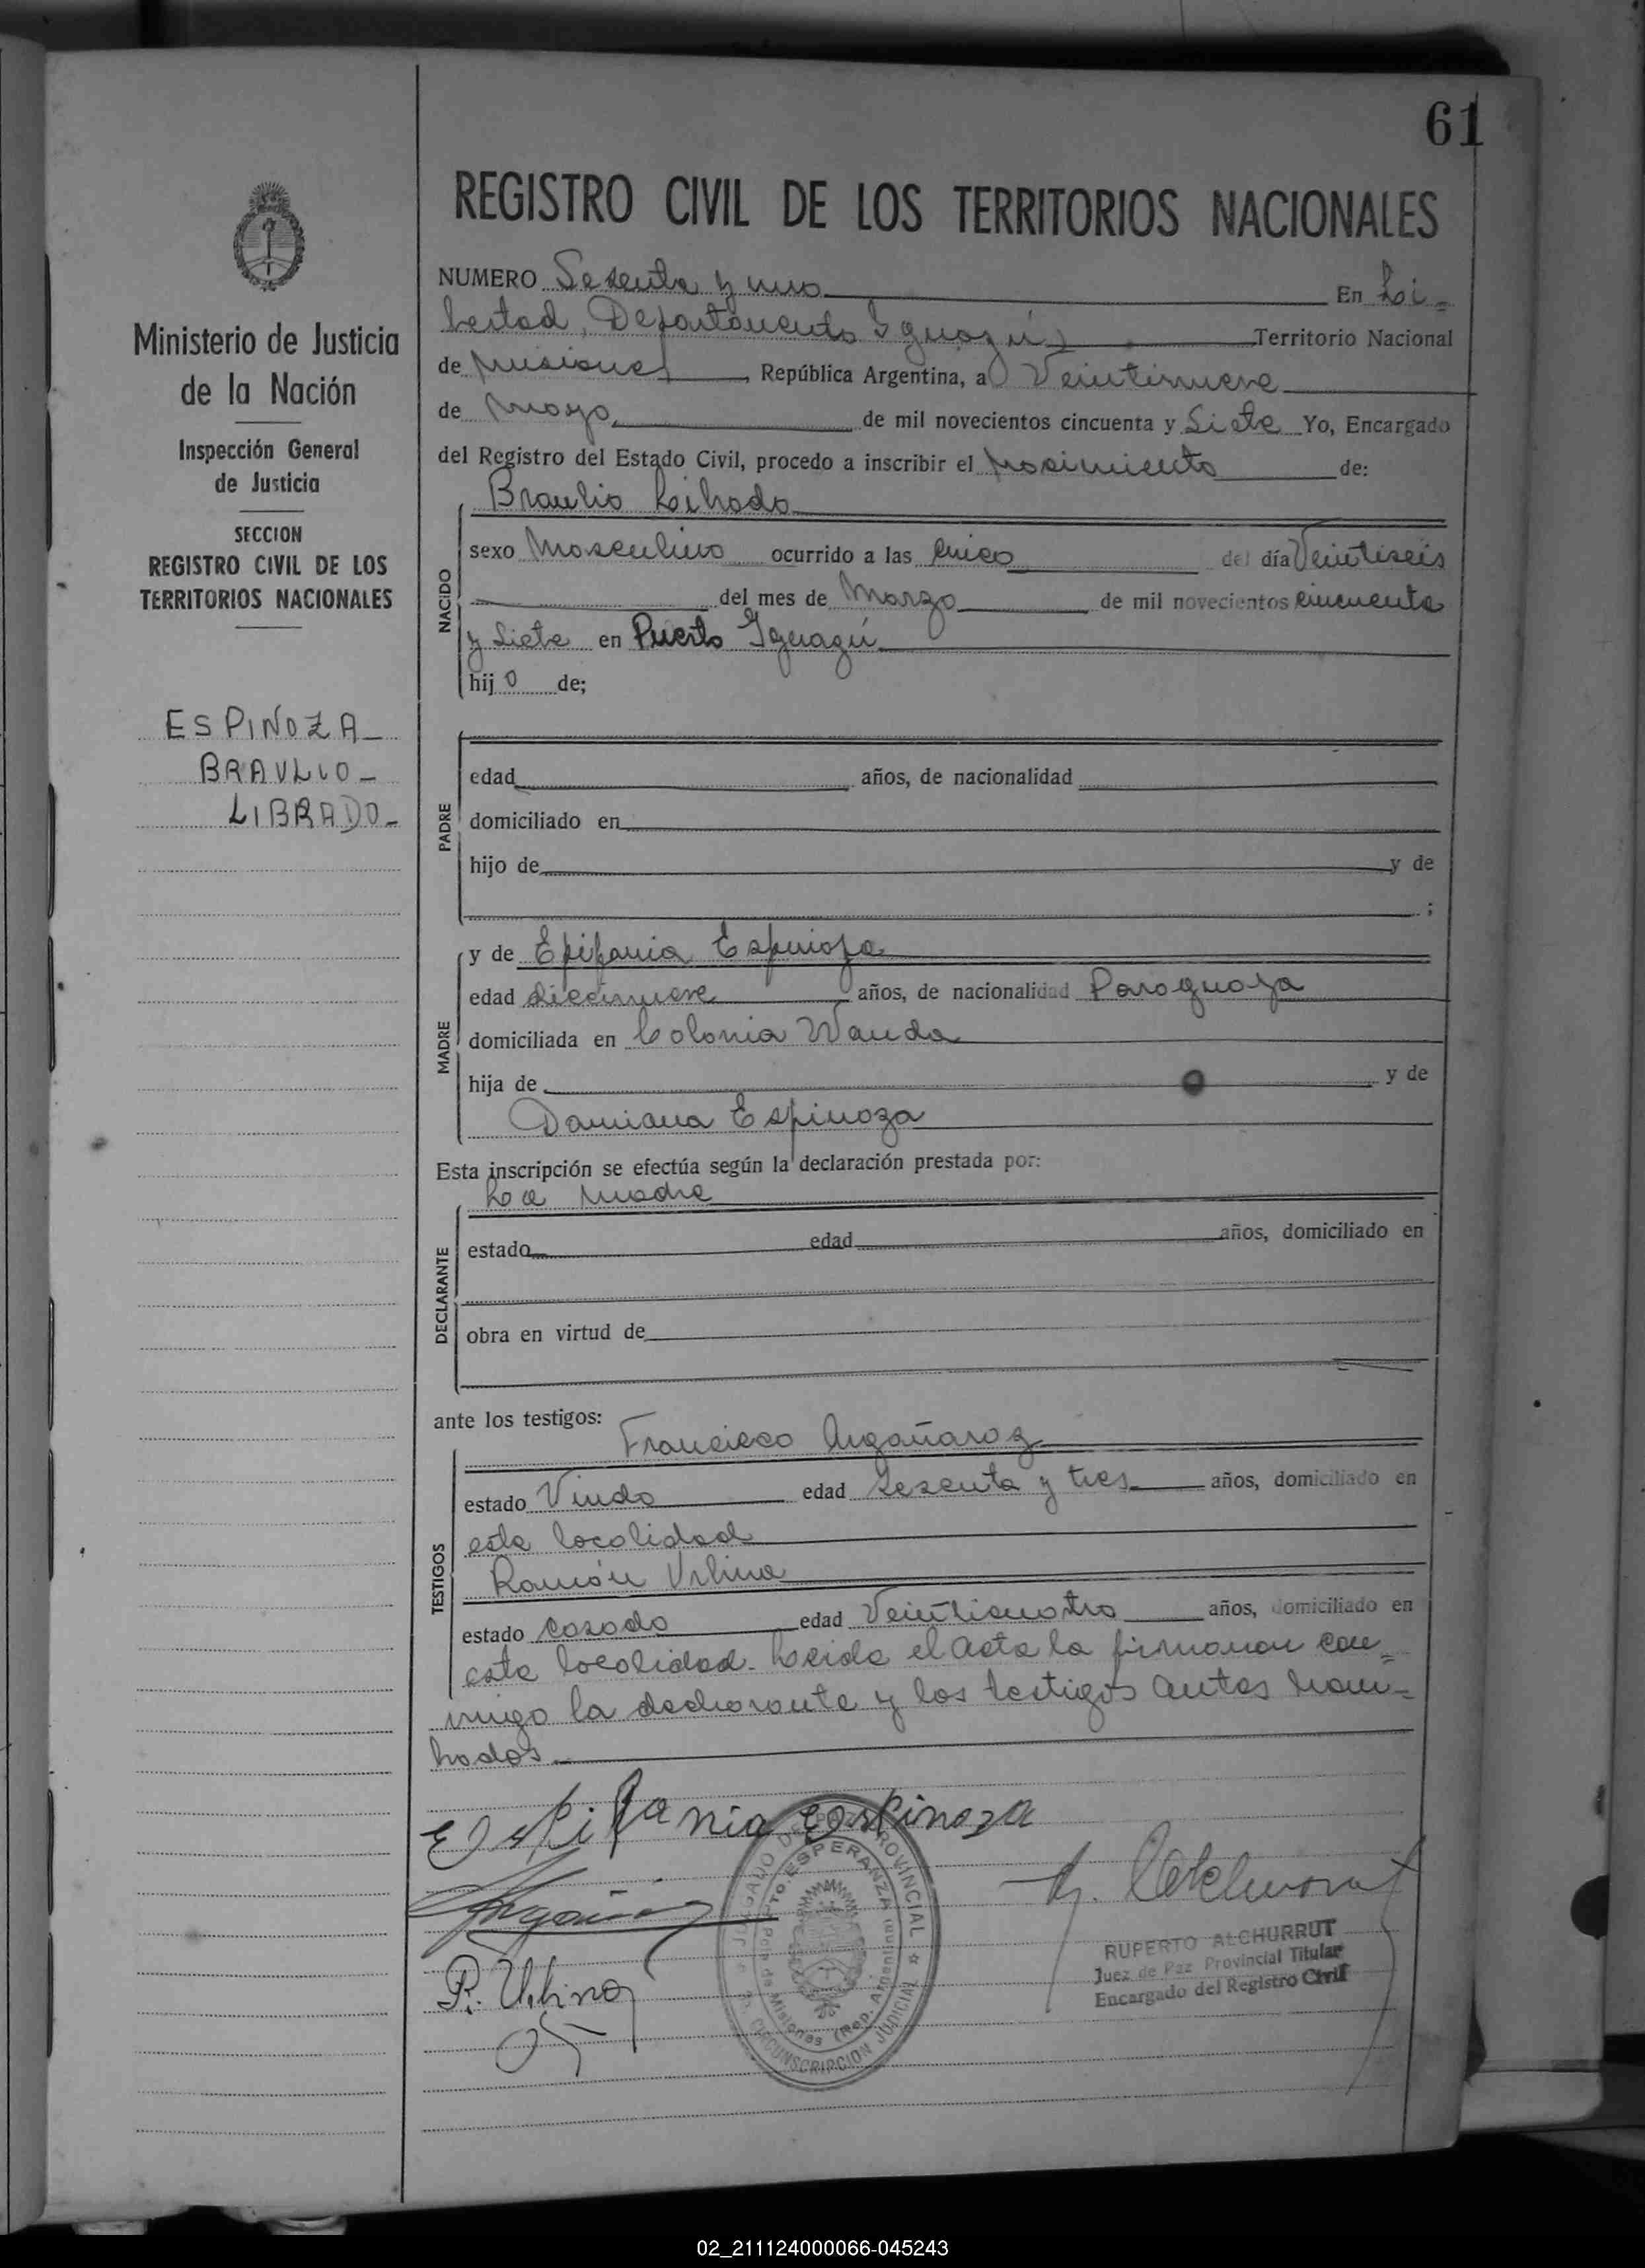 61
REGISTRO CIVIL DE LOS TERRITORIOS NACIONALES
Ministerio de Justicia
de la Nación
Inspección General
de Justicia
SECCION
REGISTRO CIVIL DE LOS
TERRITORIOS NACIONALES
ESPINOZA
BRAULIO
LIBRADO
NUMERO Sesenta y uno En Li-
bertad, Departamento Iguazú Territorio Nacional
de Misiones, República Argentina, a Veintinueve
de Mayo de mil novecientos cincuenta y Siete Yo, Encargado
del Registro del Estado Civil, procedo a inscribir el Nacimiento de:
NACIDO
Braulio Librado
sexo Masculino ocurrido a las cinco del día Veintiseis
del mes de Marzo de mil novecientos cincuenta
y Siete en Puerto Iguazú
hijo de;
PADRE
edad años, de nacionalidad
domiciliado en
hijo de y de
;
MADRE
y de Epifania Espinoza
edad diecinueve años, de nacionalidad Paraguaya
domiciliada en Colonia Wanda
hija de y de
Damiana Espinoza
Esta inscripción se efectúa según la declaración prestada por:
DECLARANTE
La Madre
estado edad años, domiciliado en
obra en virtud de
ante los testigos:
TESTIGOS
Francisco Argañaraz
estado Viudo edad Sesenta y tres años, domiciliado en
esta localidad
Ramón Urbina
estado casado edad Veinticuatro años, domiciliado en
esta localidad. Leida el Acta la firmaron con-
migo la declarante y los testigos antes nom-
brados.
Epifania Espinoza
P. Urbina
JUZGADO DE PAZ PROVINCIAL
PTO. ESPERANZA
Pcia de Misiones (Rep. Argentina)
CIRCUNSCRIPCION JUDICIAL
RUPERTO ALCHURRUT
Juez de Paz Provincial Titular
Encargado del Registro Civil
02_211124000066-045243